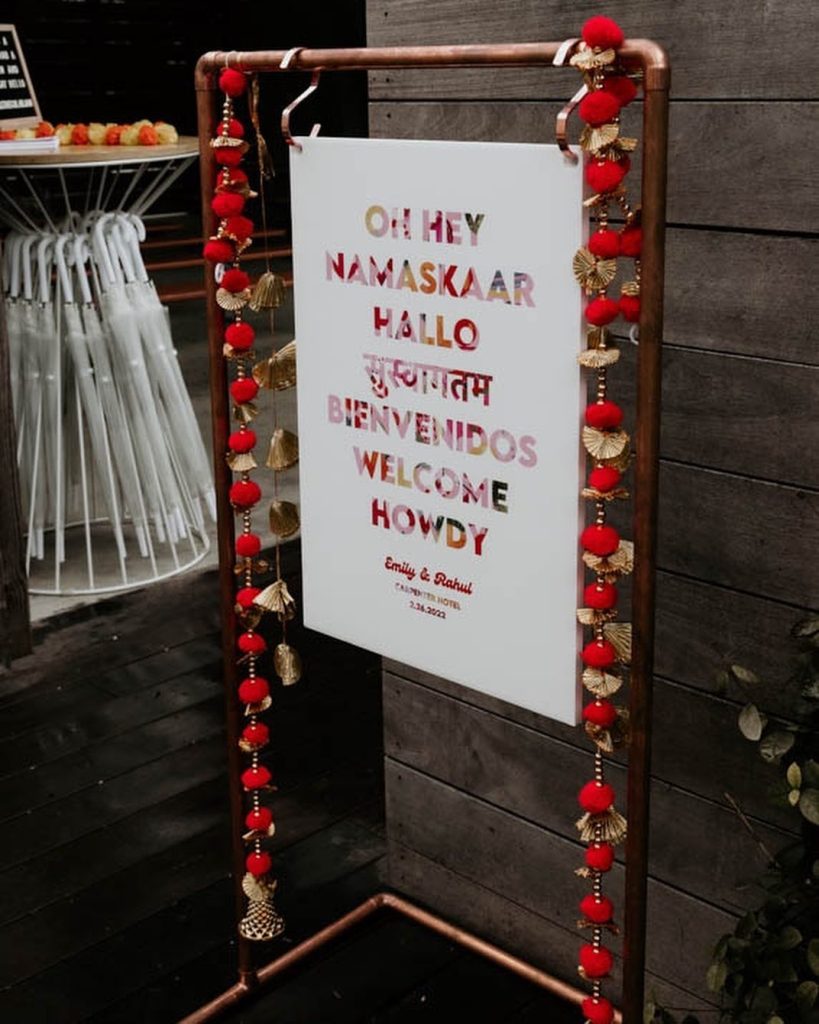 OH HEY
NAMASKAAR
HALLO
सुस्वागतम
BIENVENIDOS
WELCOME
HOWDY
Emily & Rahul
CARPENTER HOTEL
2.26.2022